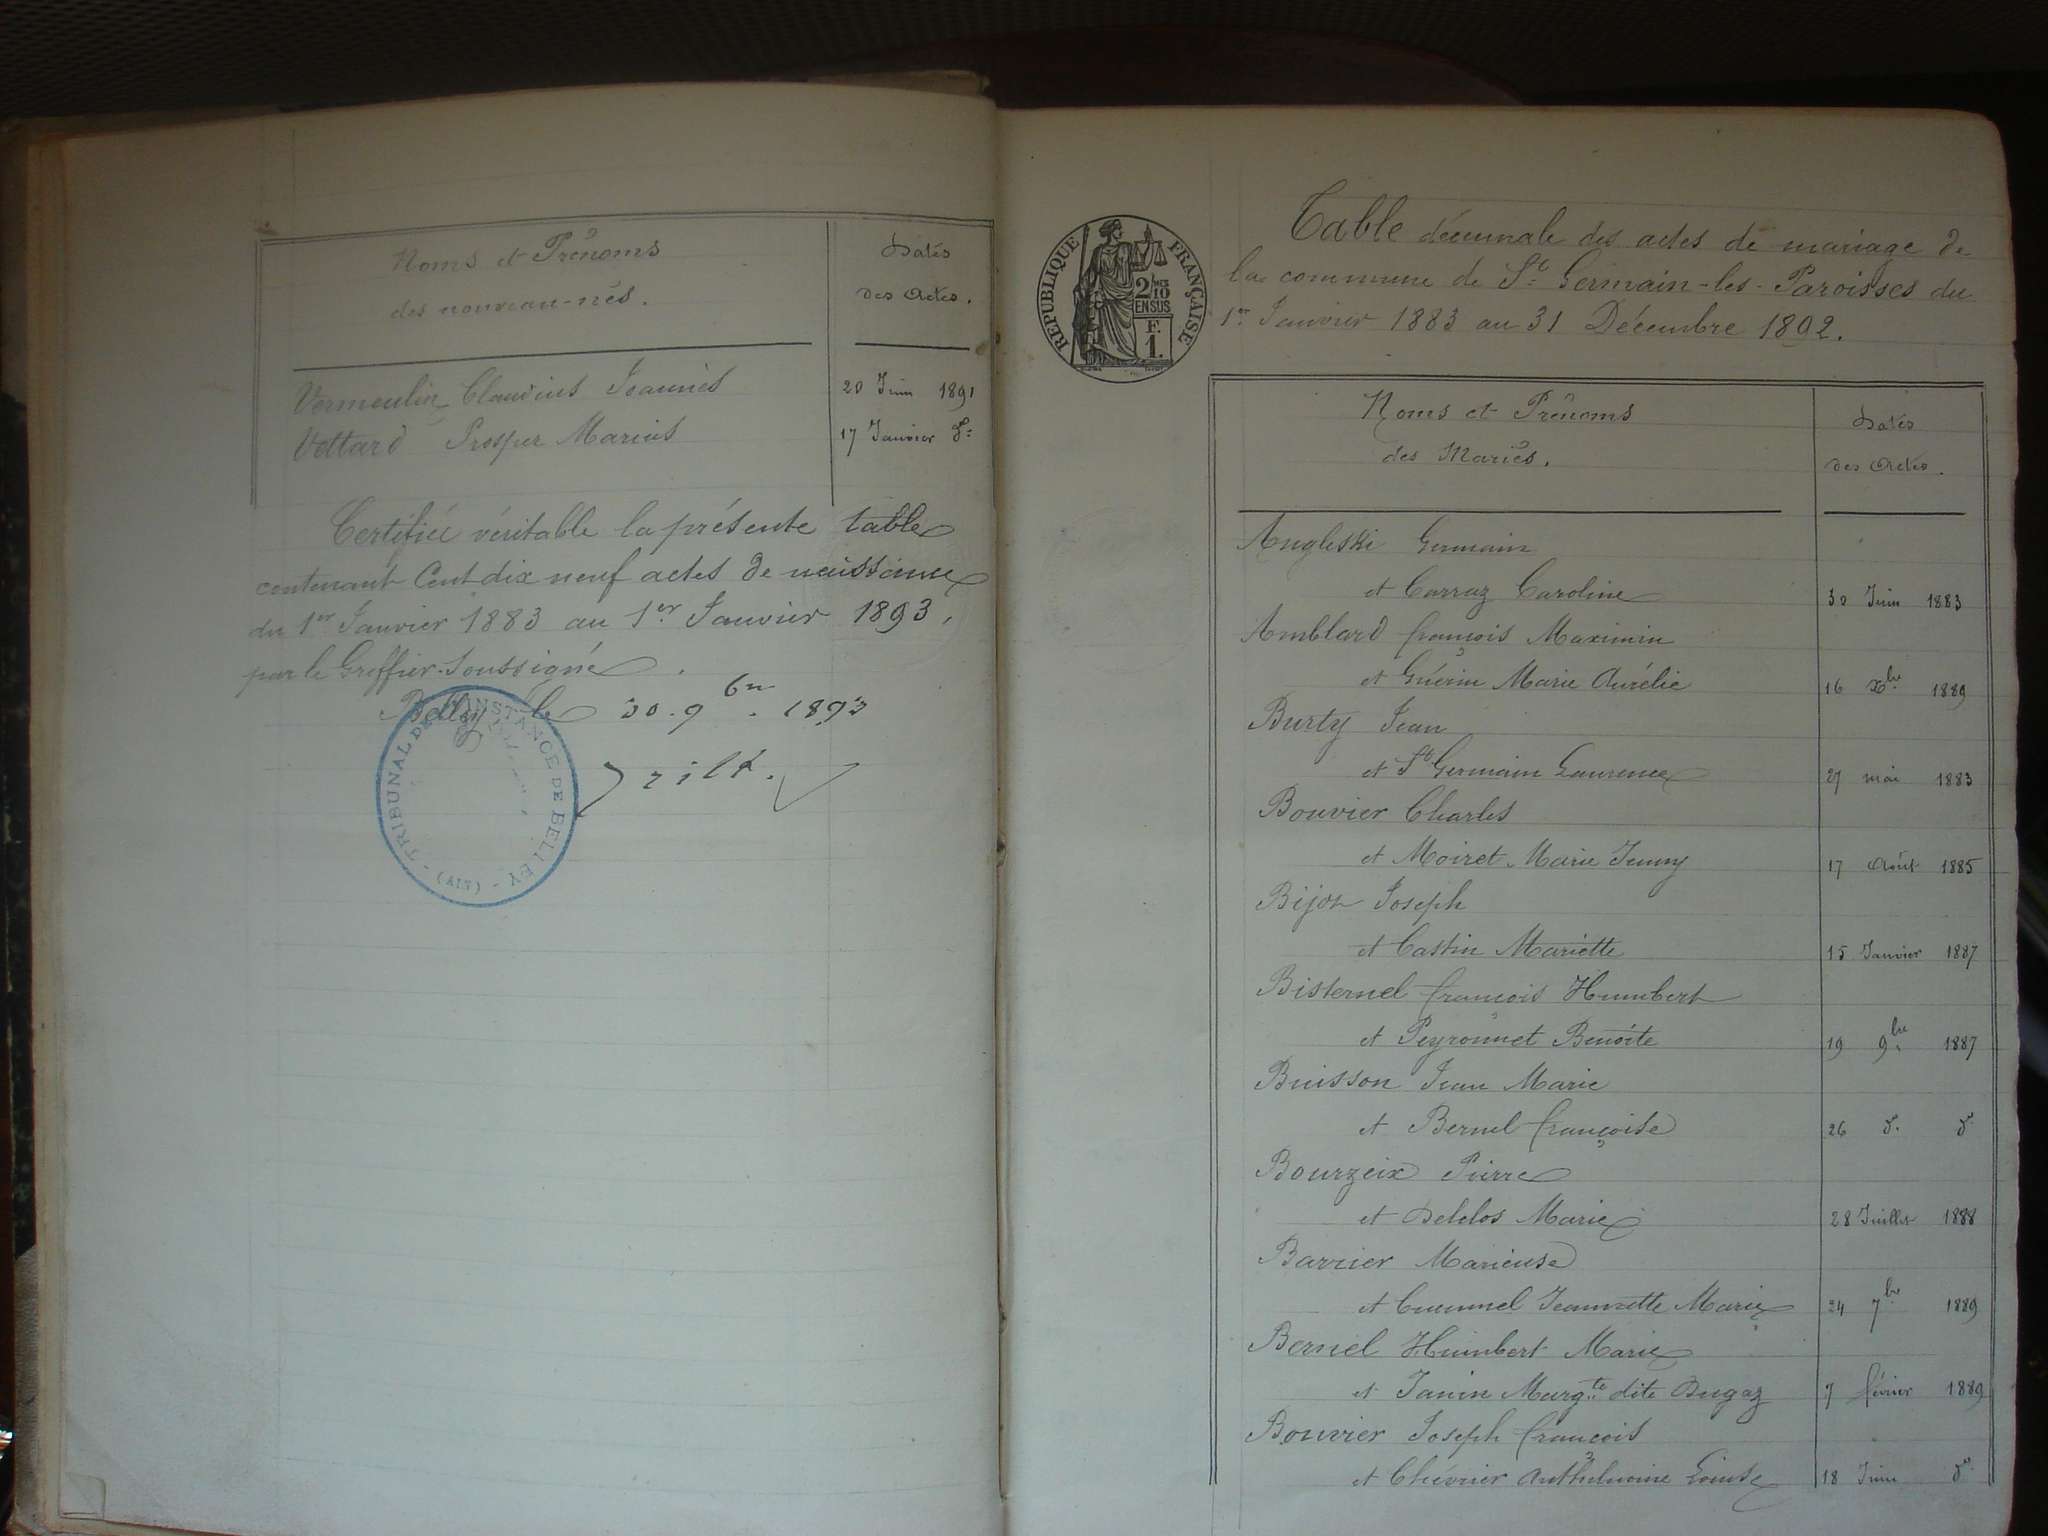 Noms et Prénoms
des nouveau-nés.
Dates
des Actes.
Vermeulin Claudius Joannès 20 Juin 1891
Vettard Prosper Marius 17 Janvier d°
Certifiée véritable la présente table
contenant Cent dix neuf actes de naissance
du 1er Janvier 1883 au 1er Janvier 1893,
par le Greffier soussigné.
Belley le 30. 9bre. 1893
TRIBUNAL DE INSTANCE DE BELLEY
- (AIN) -
RÉPUBLIQUE FRANÇAISE
2/10
EN SUS
F.
1.
Table décennale des actes de mariage de
la commune de St Germain-les-Paroisses du
1er Janvier 1883 au 31 Décembre 1892.
Noms et Prénoms
des Mariés.
Dates
des Actes.
Angleski Germain
et Carraz Caroline 30 Juin 1883
Amblard françois Maximin
et Guérin Marie Aurélie 16 Xbre 1889
Burty Jean
et St Germain Laurence 27 mai 1883
Bouvier Charles
et Moiret Marie Jenny 17 Août 1885
Bijot Joseph
et Castin Mariette 15 Janvier 1887
Bisternel françois Humbert
et Peyronnet Benoîte 19 9bre 1887
Buisson Jean Marie
et Bernel françoise 26 d° d°
Bourzeix Pierre
et Delclos Marie 28 Juillet 1888
Barrier Marieuse
et Jeannette Marie 24 7bre 1889
Bernel Humbert Marie
et Janin Margte dite Dugaz 7 février 1889
Bouvier Joseph françois
et Chévrier Anthelmoine Louise 18 Juin d°